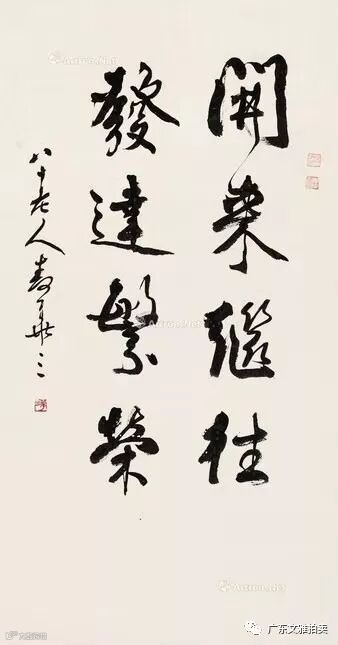 開來繼往
發達繁榮
八十老人麦華三
Artron.Net
广东文雅拍卖